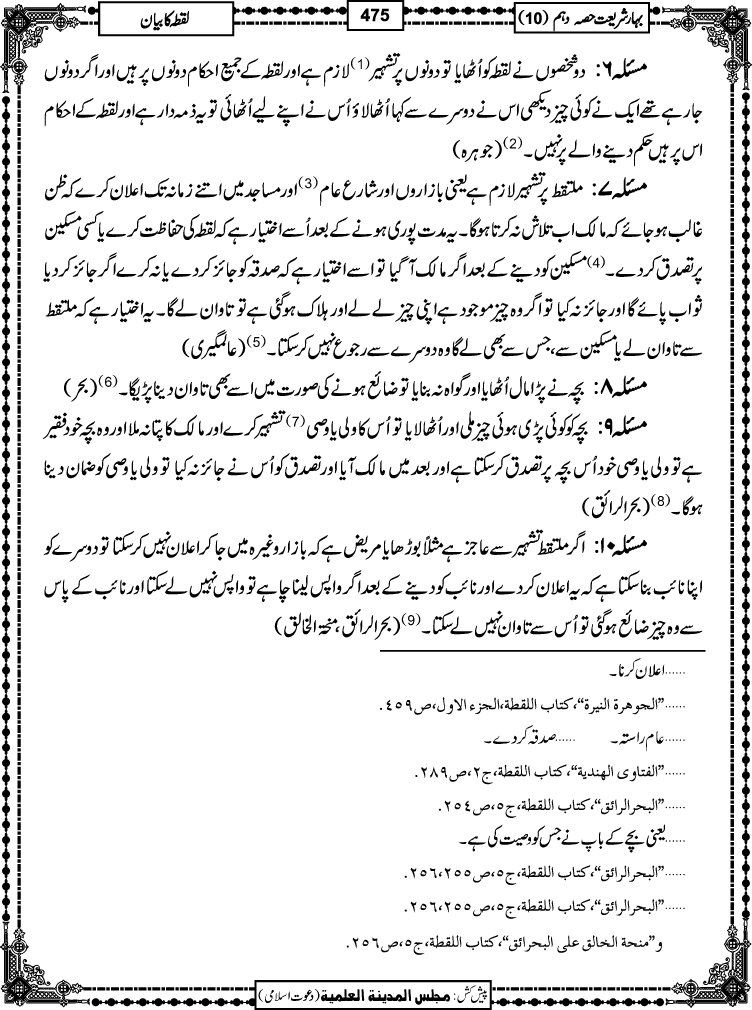 بہارِ شریعت حصہ دہم (10)
475
لقطہ کا بیان
مسئلہ ۶: دو شخصوں نے لقطہ کو اُٹھایا تو دونوں پر تشہیر (1) لازم ہے اور لقطہ کے جمیع احکام دونوں پر ہیں اور اگر دونوں
جارہے تھے ایک نے کوئی چیز دیکھی اس نے دوسرے سے کہا اُٹھالاؤ اُس نے اپنے لیے اُٹھائی تو یہ ذمہ دار ہے اور لقطہ کے احکام
اس پر ہیں حکم دینے والے پر نہیں۔ (2) (جوہرہ)
مسئلہ ۷: ملتقط پر تشہیر لازم ہے یعنی بازاروں اور شارع عام (3) اور مساجد میں اتنے زمانہ تک اعلان کرے کہ ظن
غالب ہو جائے کہ مالک اب تلاش نہ کرتا ہوگا۔ یہ مدت پوری ہونے کے بعد اُسے اختیار ہے کہ لقطہ کی حفاظت کرے یا کسی مسکین
پر تصدق کردے۔ (4) مسکین کو دینے کے بعد اگر مالک آگیا تو اسے اختیار ہے کہ صدقہ کو جائز کردے یا نہ کرے اگر جائز کردیا
ثواب پائے گا اور جائز نہ کیا تو اگر وہ چیز موجود ہے اپنی چیز لے لے اور ہلاک ہوگئی ہے تو تاوان لے گا۔ یہ اختیار ہے کہ ملتقط
سے تاوان لے یا مسکین سے، جس سے بھی لے گا وہ دوسرے سے رجوع نہیں کرسکتا۔ (5) (عالمگیری)
مسئلہ ۸: بچہ نے پڑا مال اُٹھایا اور گواہ نہ بنایا تو ضائع ہونے کی صورت میں اسے بھی تاوان دینا پڑیگا۔ (6) (بحر)
مسئلہ ۹: بچہ کو کوئی پڑی ہوئی چیز ملی اور اُٹھالایا تو اُس کا ولی یا وصی (7) تشہیر کرے اور مالک کا پتا نہ ملا اور وہ بچہ خود فقیر
ہے تو ولی یا وصی خود اُس بچہ پر تصدق کرسکتا ہے اور بعد میں مالک آیا اور تصدق کو اُس نے جائز نہ کیا تو ولی یا وصی کو ضمان دینا
ہوگا۔ (8) (بحرالرائق)
مسئلہ ۱۰: اگر ملتقط تشہیر سے عاجز ہے مثلاً بوڑھا یا مریض ہے کہ بازار وغیرہ میں جاکر اعلان نہیں کرسکتا تو دوسرے کو
اپنا نائب بنا سکتا ہے کہ یہ اعلان کردے اور نائب کو دینے کے بعد اگر واپس لینا چاہے تو واپس نہیں لے سکتا اور نائب کے پاس
سے وہ چیز ضائع ہوگئی تو اُس سے تاوان نہیں لے سکتا۔ (9) (بحرالرائق، منحۃ الخالق)
......اعلان کرنا۔
......”الجوهرة النيرة“، كتاب اللقطة، الجزء الاول، ص٤٥٩.
......عام راستہ۔ ......صدقہ کردے۔
......”الفتاوى الهندية“، كتاب اللقطة، ج٢، ص٢٨٩.
......”البحرالرائق“، كتاب اللقطة، ج٥، ص٢٥٤.
......یعنی بچے کے باپ نے جس کو وصیت کی ہے۔
......”البحرالرائق“، كتاب اللقطة، ج٥، ص٢٥٥،٢٥٦.
......”البحرالرائق“، كتاب اللقطة، ج٥، ص٢٥٥،٢٥٦.
و”منحة الخالق على البحرالرائق“، كتاب اللقطة، ج٥، ص٢٥٦.
پیش کش: مجلس المدینة العلمیة (دعوت اسلامی)